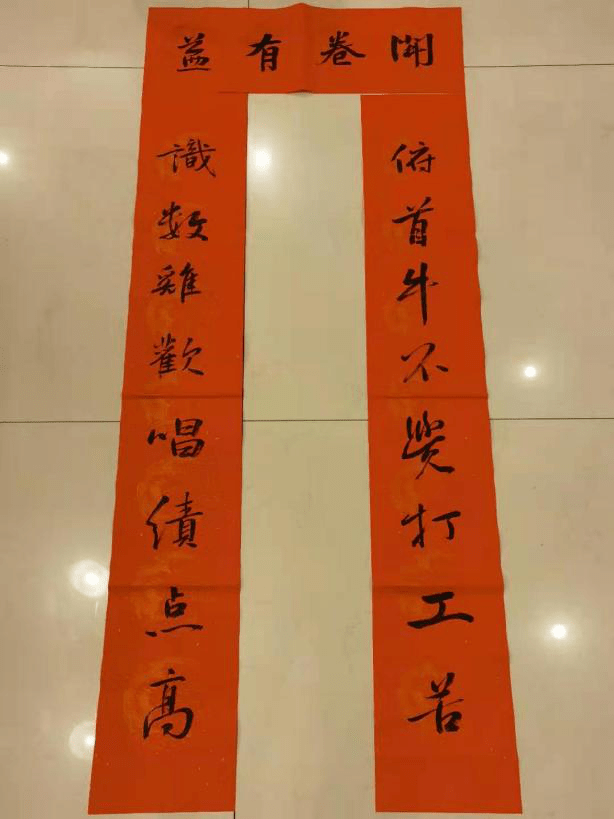 開卷有益
俯首牛不覺打工苦
識数雞歡唱績点高